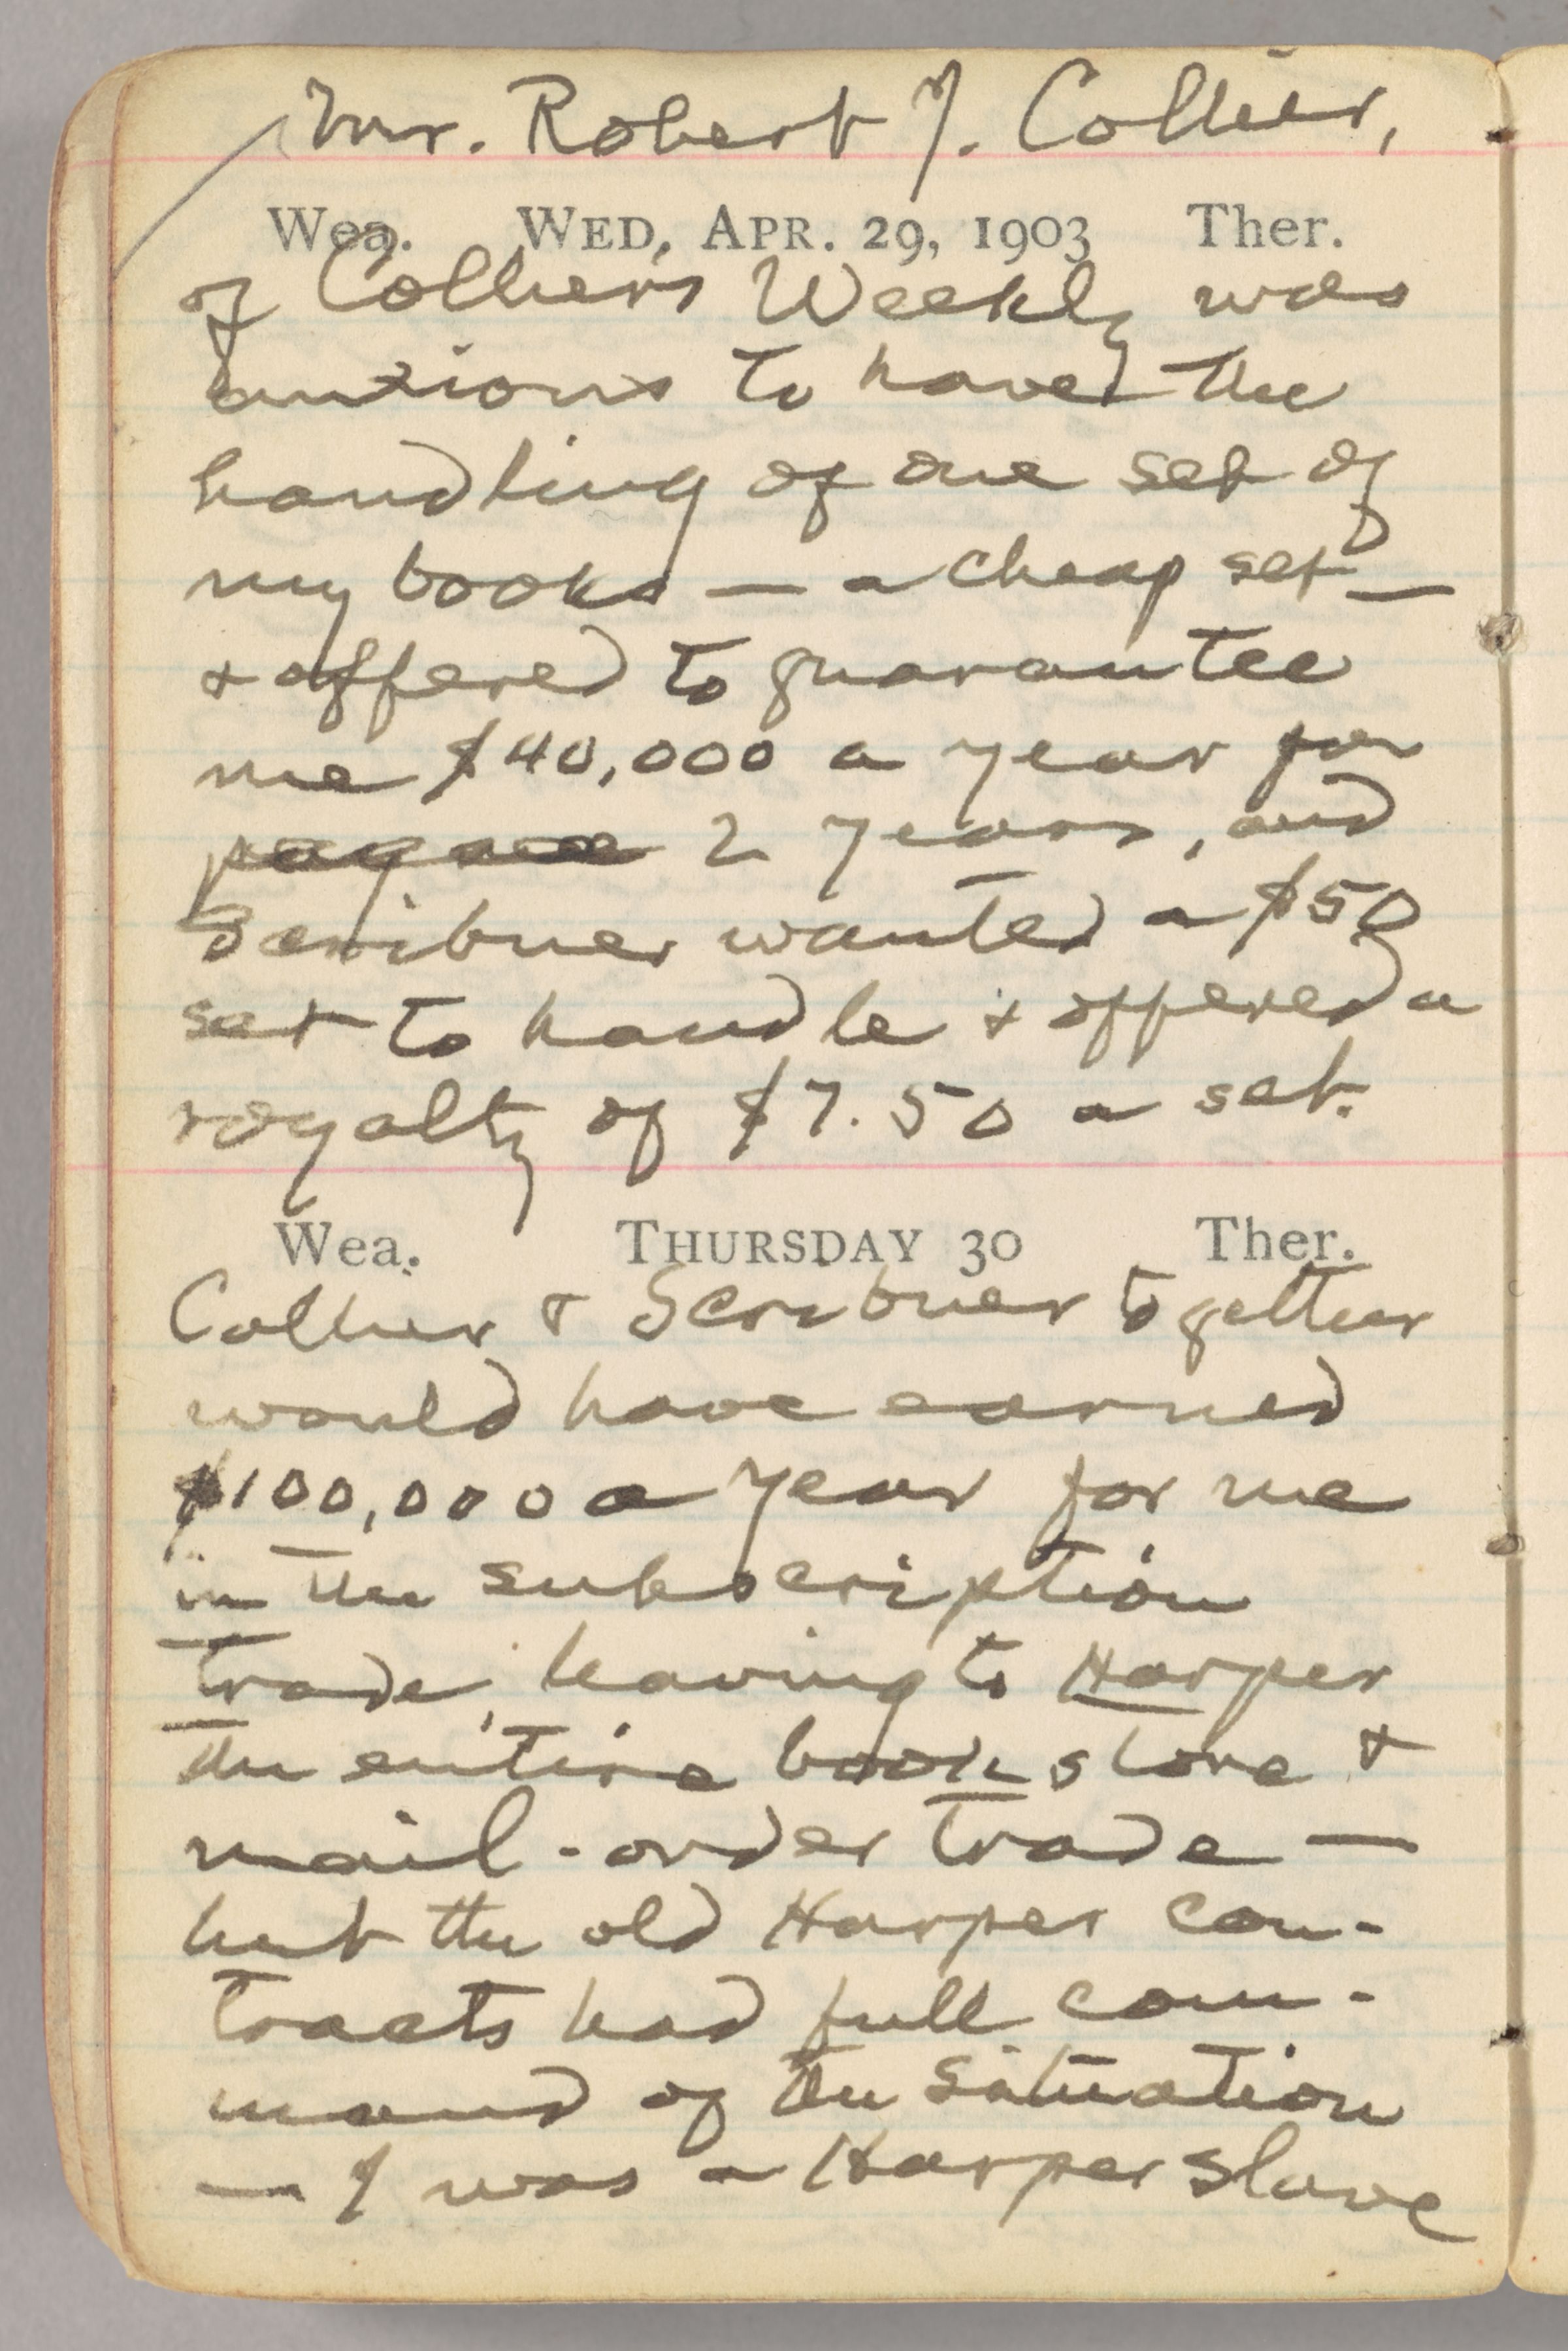 Mr. Robert J. Collier,
Wea. WED, APR. 29, 1903 Ther.
of Collier's Weekly was
anxious to have the
handling of one set of
my books — a cheap set —
& offered to guarantee
me $40,000 a year for
2 years, and
Scribner wanted a $50
set to handle & offered a
royalty of $7.50 a set.
Wea. THURSDAY 30 Ther.
Collier & Scribner together
would have earned
$100,000 a year for me
in the subscription
trade, leaving to Harper
the entire book store &
mail-order trade —
but the old Harper con-
tracts had full com-
mand of the situation
— I was a Harper slave